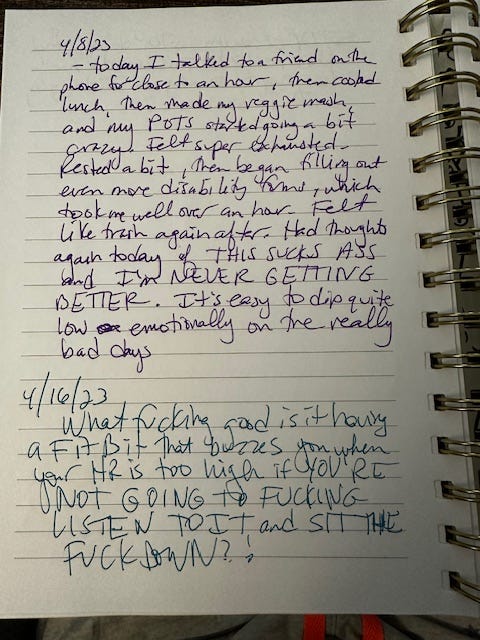 4/8/23
- today I talked to a friend on the
phone for close to an hour, then cooked
lunch, then made my veggie mash,
and my POTS started going a bit
crazy. Felt super exhausted.
Rested a bit, then began filling out
even more disability forms, which
took me well over an hour. Felt
like trash again after. Had thoughts
again today of THIS SUCKS ASS
and I'm NEVER GETTING
BETTER. It's easy to dip quite
low emotionally on the really
bad days
4/16/23
What fucking good is it having
a FitBit that buzzes you when
your HR is too high if YOU'RE
NOT GOING TO FUCKING
LISTEN TO IT and SIT THE
FUCK DOWN?!